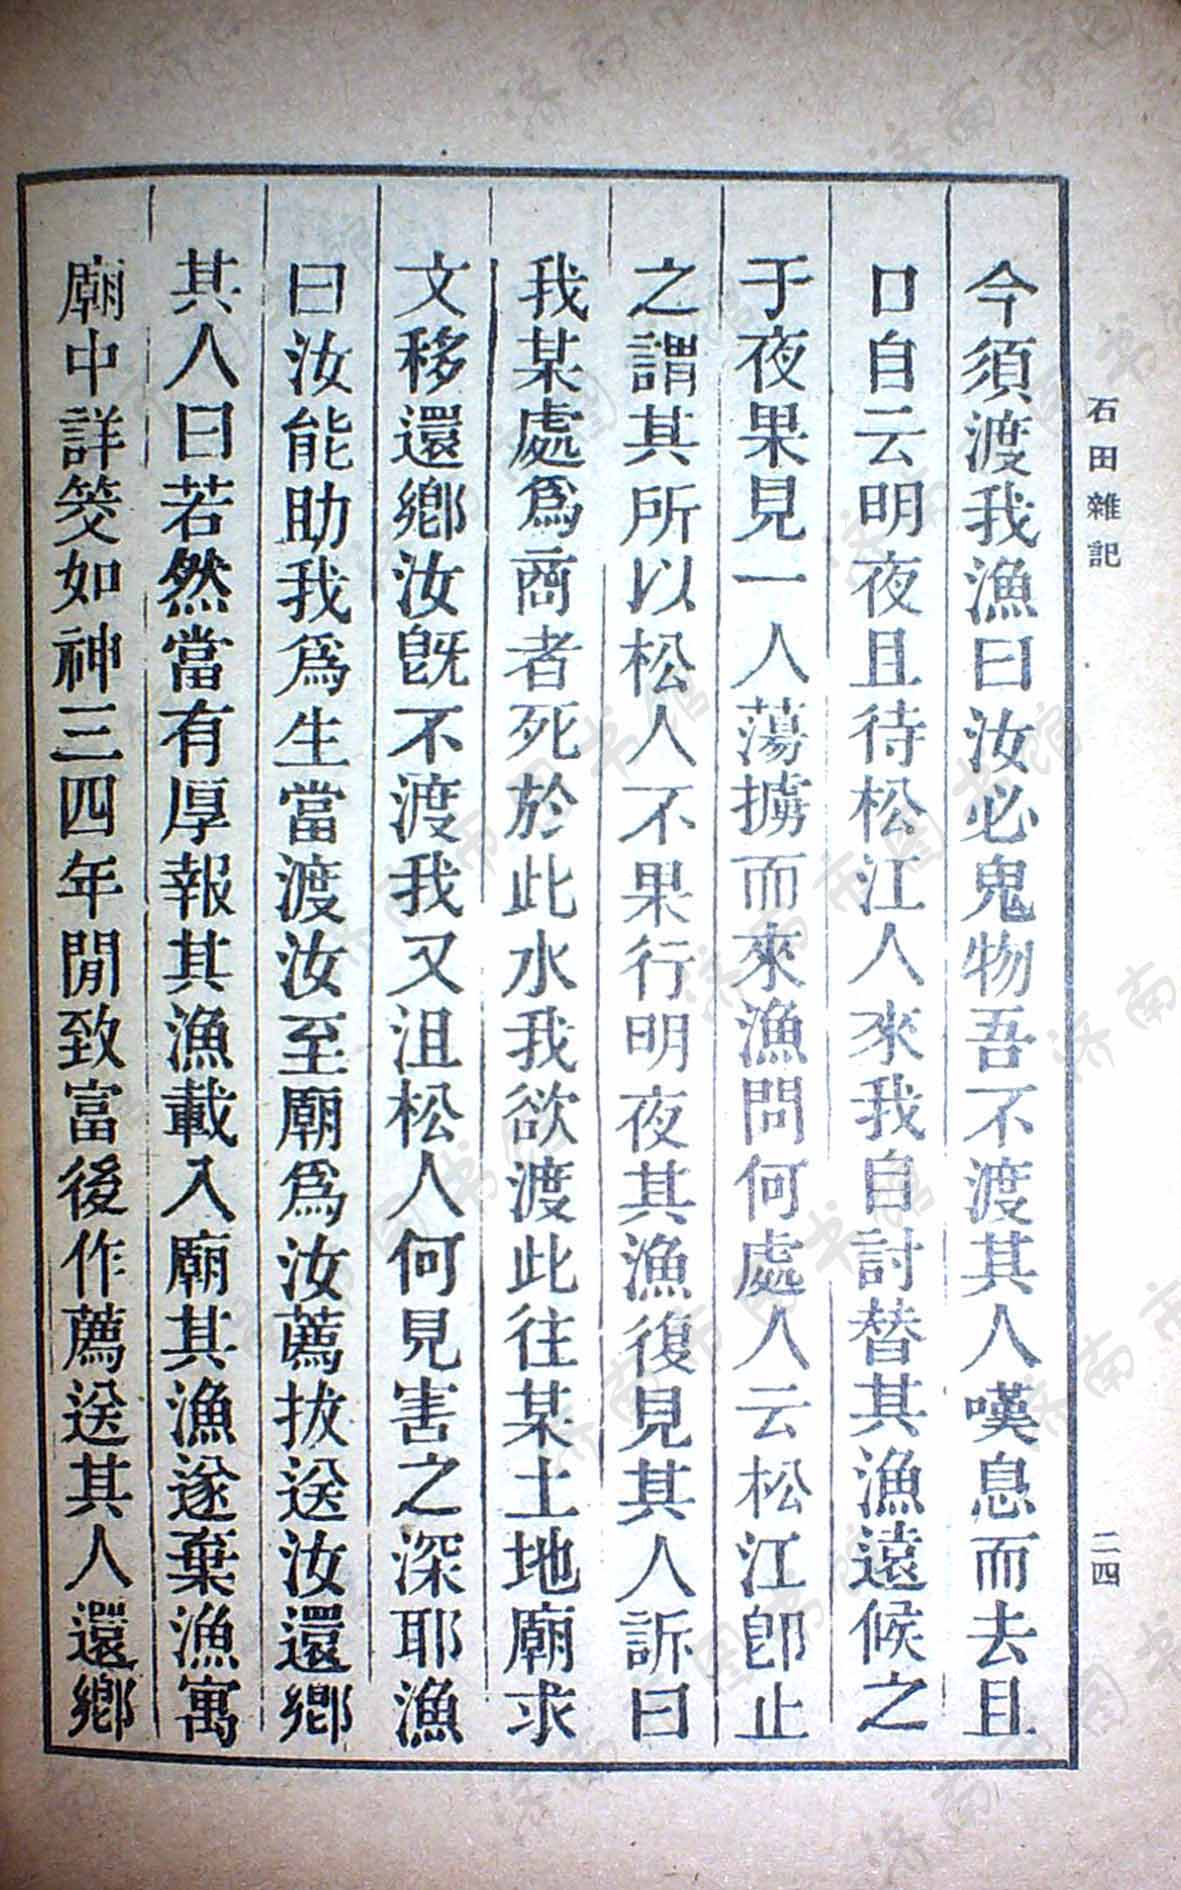 石田雜記
二四
今須渡我漁曰汝必鬼物吾不渡其人嘆息而去且
口自云明夜且待松江人來我自討替其漁遠候之
于夜果見一人蕩擄而來漁問何處人云松江卽止
之謂其所以松人不果行明夜其漁復見其人訴曰
我某處爲商者死於此水我欲渡此往某土地廟求
文移還鄕汝旣不渡我又沮松人何見害之深耶漁
曰汝能助我爲生當渡汝至廟爲汝薦拔送汝還鄕
其人曰若然當有厚報其漁載入廟其漁遂棄漁寓
廟中詳筊如神三四年閒致富後作薦送其人還鄕
济南市图书馆